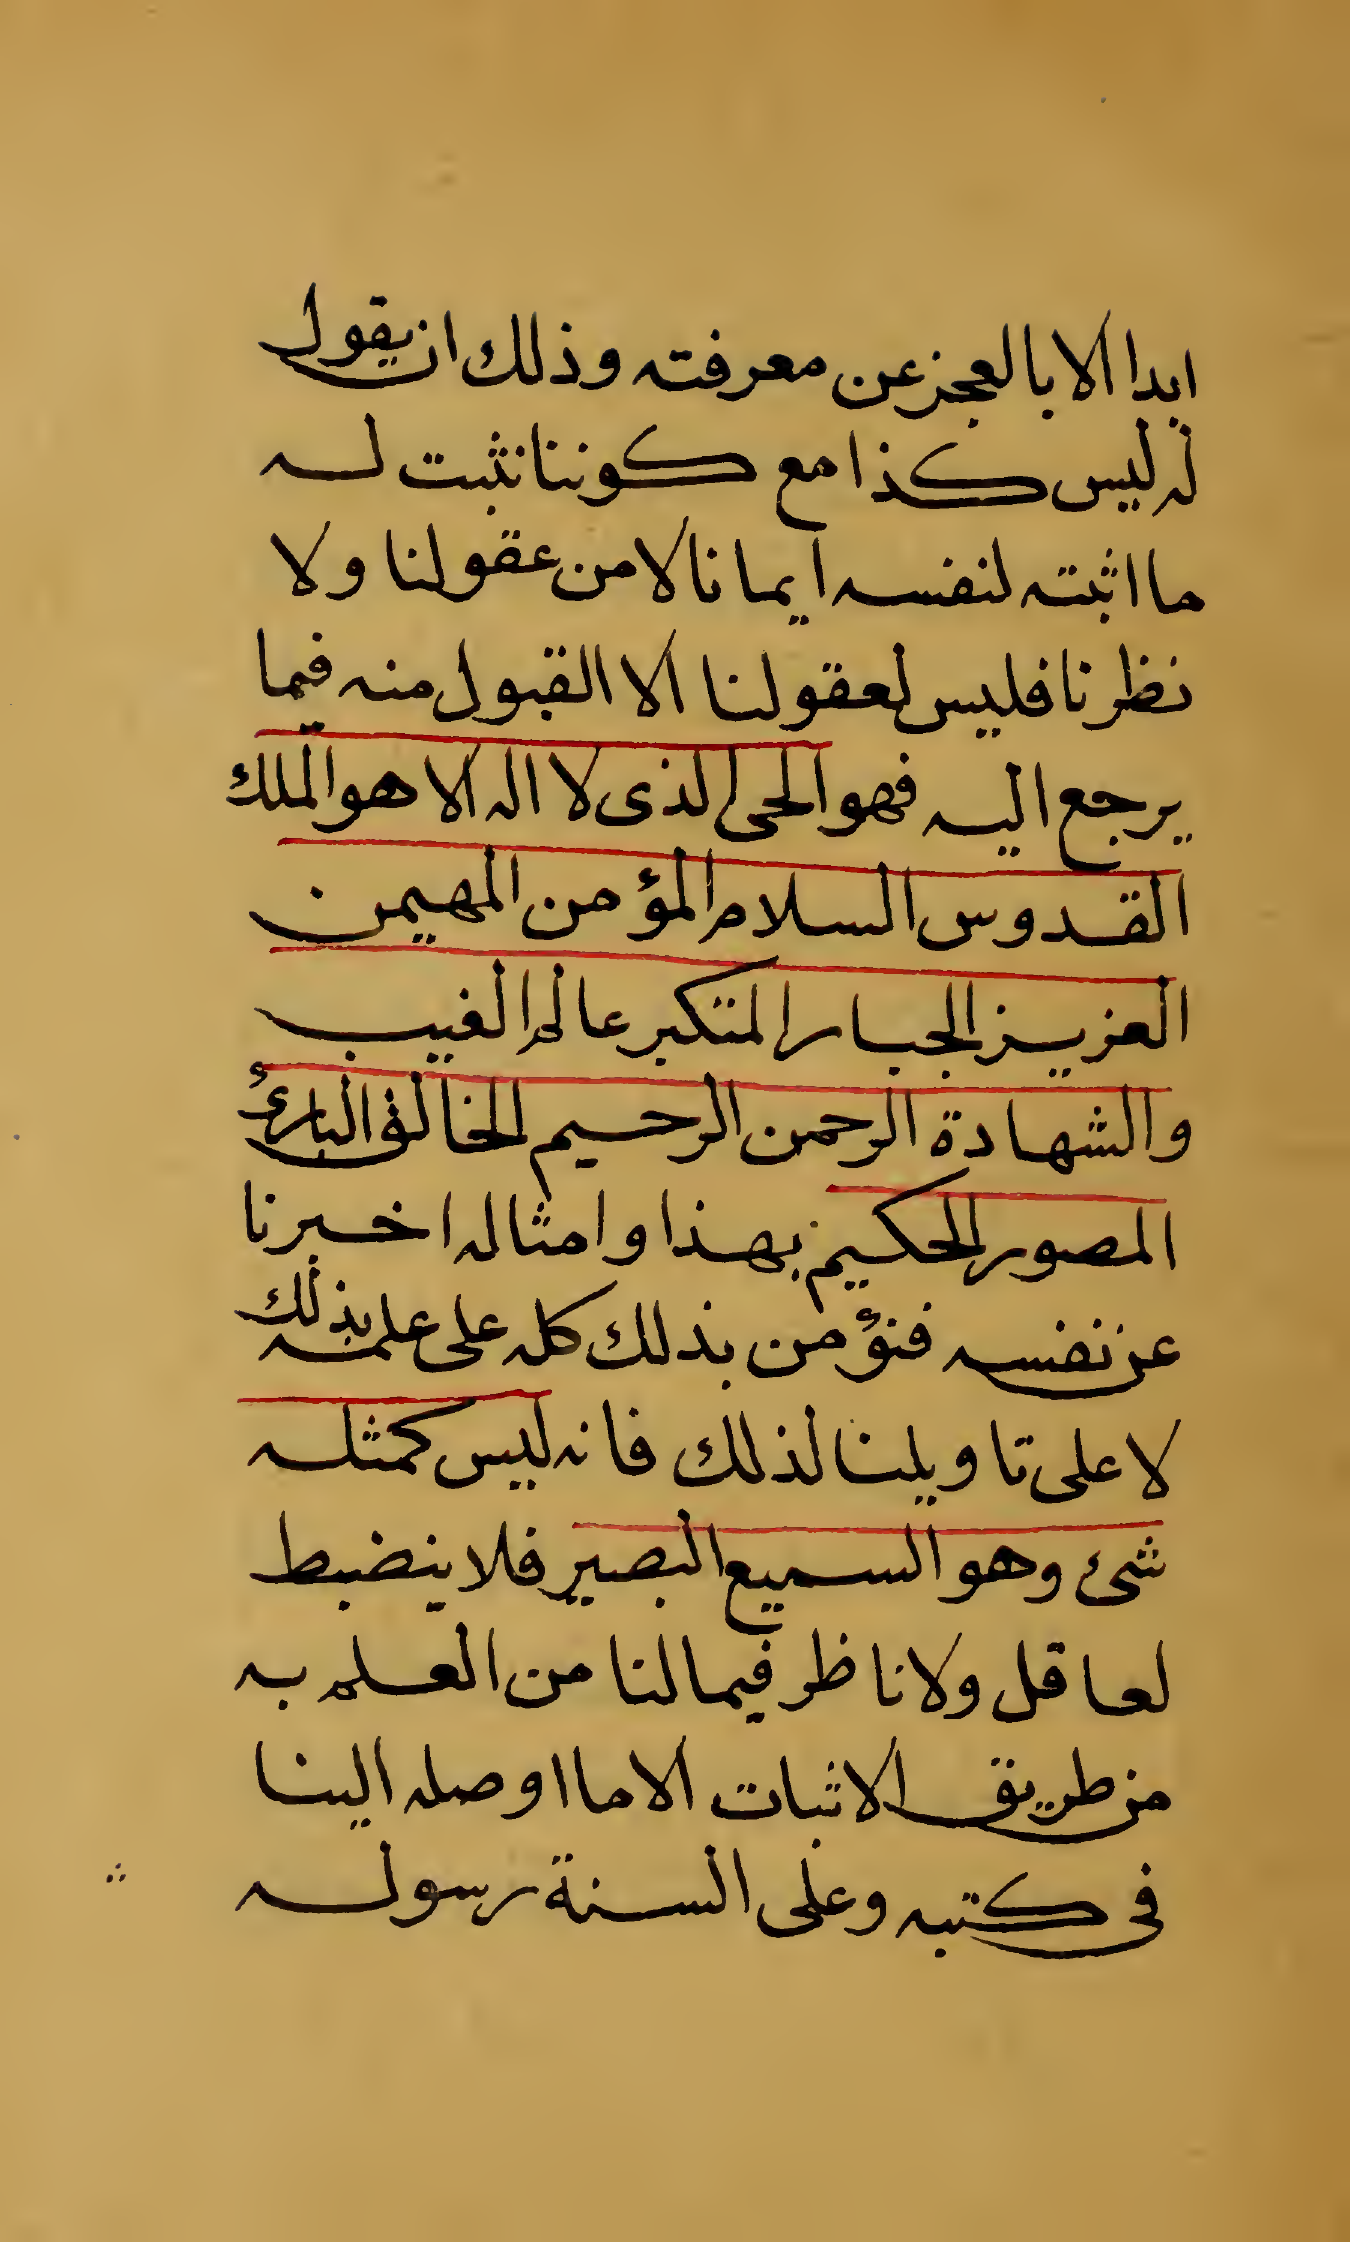 ابدا الا بالعجز عن معرفته وذلك ان يقول
له ليس كذا مع كوننا نثبت له
ما اثبته لنفسه ايمانا لا من عقولنا ولا
نظرنا فليس لعقولنا الا القبول منه فيما
يرجع اليه فهو الحى الذى لا اله الا هو الملك
القدوس السلام المؤمن المهيمن
العزيز الجبار المتكبر عالم الغيب
والشهادة الرحمن الرحيم الخالق البارئ
المصور الحكيم بهذا وامثاله اخبرنا
عن نفسه فنؤمن بذلك كله على علمه بذلك
لا على تاويلنا لذلك فانه ليس كمثله
شئ وهو السميع البصير فلا ينضبط
لعاقل ولا ناظر فيما لنا من العلم به
من طريق الاثبات الا ما اوصله الينا
فى كتبه وعلى السنة رسوله